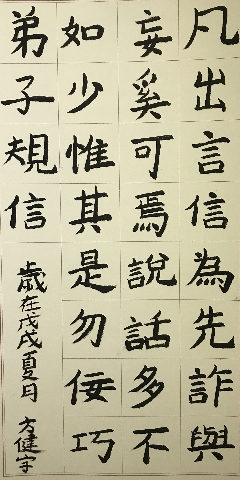 凡出言信為先詐與
妄奚可焉說話多不
如少惟其是勿佞巧
弟子規信
歲在戊戌夏月 方健宇